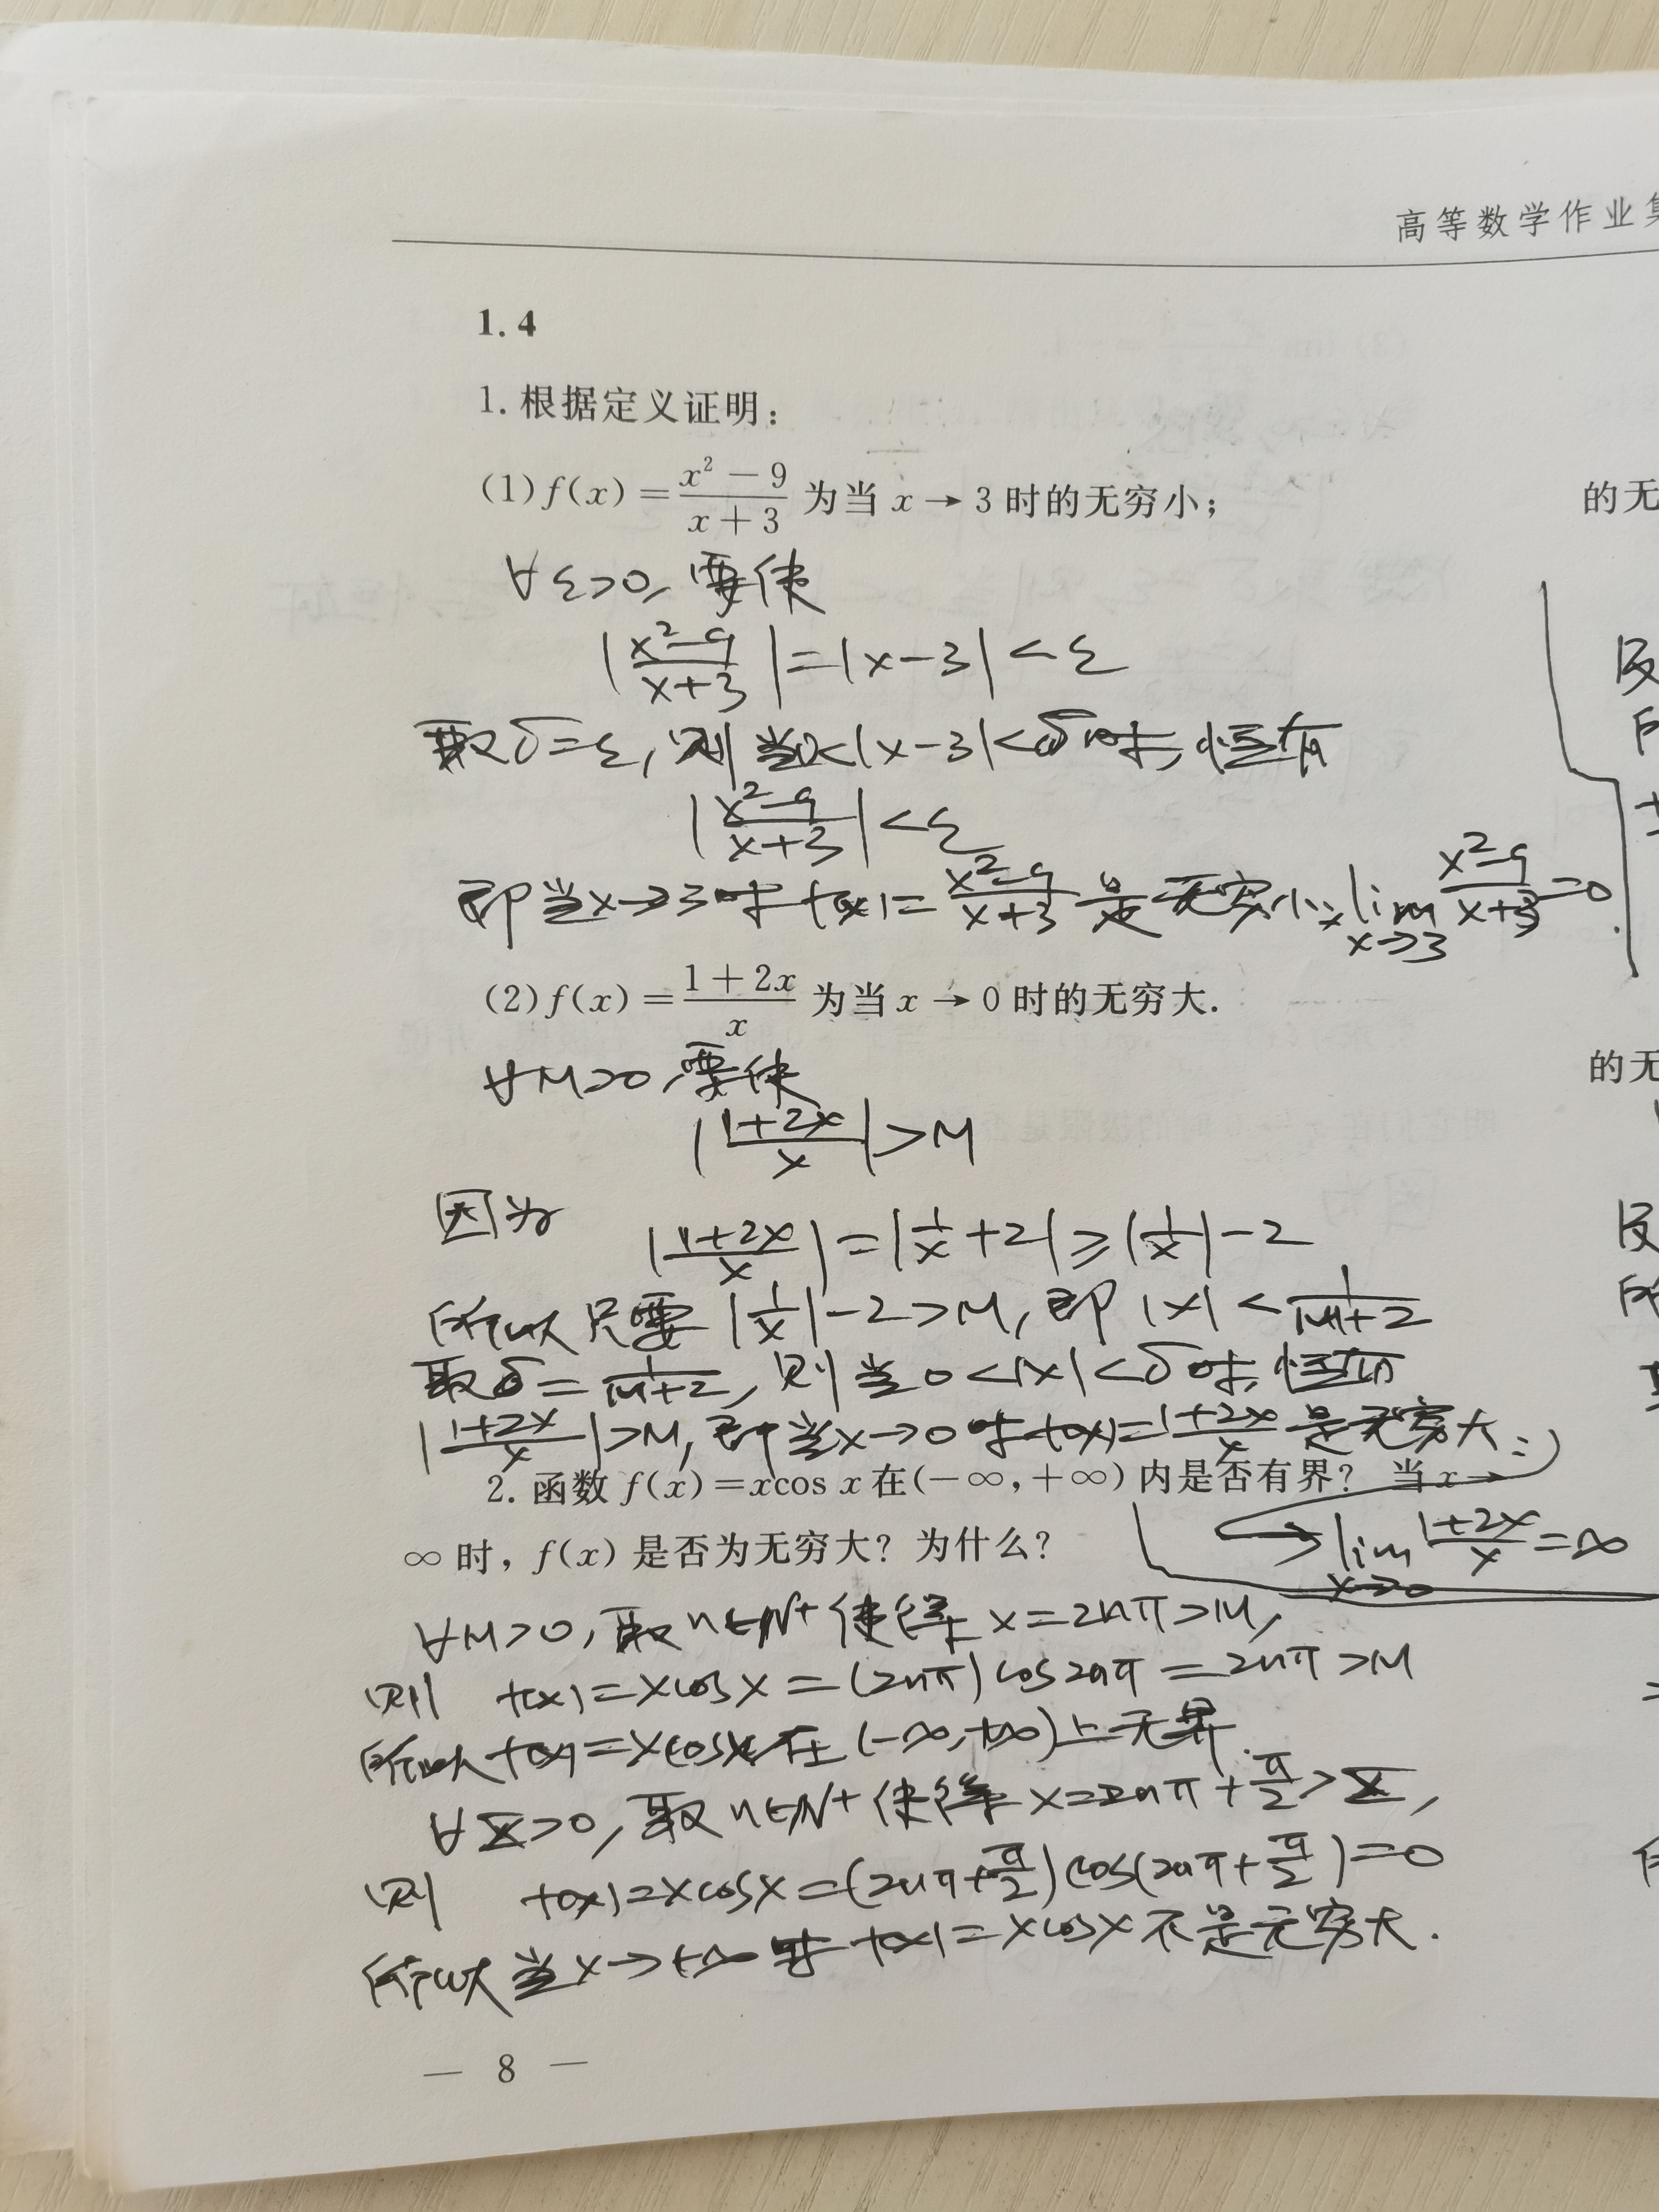 高等数学作业集
1.4
1. 根据定义证明：
(1) f(x) = \frac{x² − 9}{x + 3} 为当 x → 3 时的无穷小；
∀ε>0, 要使
|\frac{x²−9}{x+3}| = |x−3| < ε
取δ=ε, 则当0<|x−3|<δ时, 恒有
|\frac{x²−9}{x+3}| < ε
即当x→3时 f(x)=\frac{x²−9}{x+3} 是无穷小, \lim_{x→3} \frac{x²−9}{x+3}=0.
(2) f(x) = \frac{1 + 2x}{x} 为当 x → 0 时的无穷大.
∀M>0, 要使
|\frac{1+2x}{x}| > M
因为 |\frac{1+2x}{x}| = |\frac{1}{x}+2| ≥ |\frac{1}{x}|−2
所以只要 |\frac{1}{x}|−2>M, 即 |x| < \frac{1}{M+2}
取δ=\frac{1}{M+2}, 则当0<|x|<δ时, 恒有
|\frac{1+2x}{x}|>M, 即当x→0时 f(x)=\frac{1+2x}{x} 是无穷大.
\lim_{x→0} \frac{1+2x}{x}=∞
2. 函数 f(x) = xcos x 在(−∞, +∞) 内是否有界？ 当 x →
∞ 时, f(x) 是否为无穷大？为什么？
∀M>0, 取n∈N⁺ 使得 x=2nπ>M,
则 f(x)=xcosx=(2nπ)cos2nπ=2nπ>M
所以 f(x)=xcosx 在 (−∞,+∞)上无界.
∀X>0, 取n∈N⁺ 使得 x=2nπ+\frac{π}{2}>X,
则 f(x)=xcosx=(2nπ+\frac{π}{2})cos(2nπ+\frac{π}{2})=0
所以当x→+∞时 f(x)=xcosx 不是无穷大.
— 8 —
的无
反
的无
反
所